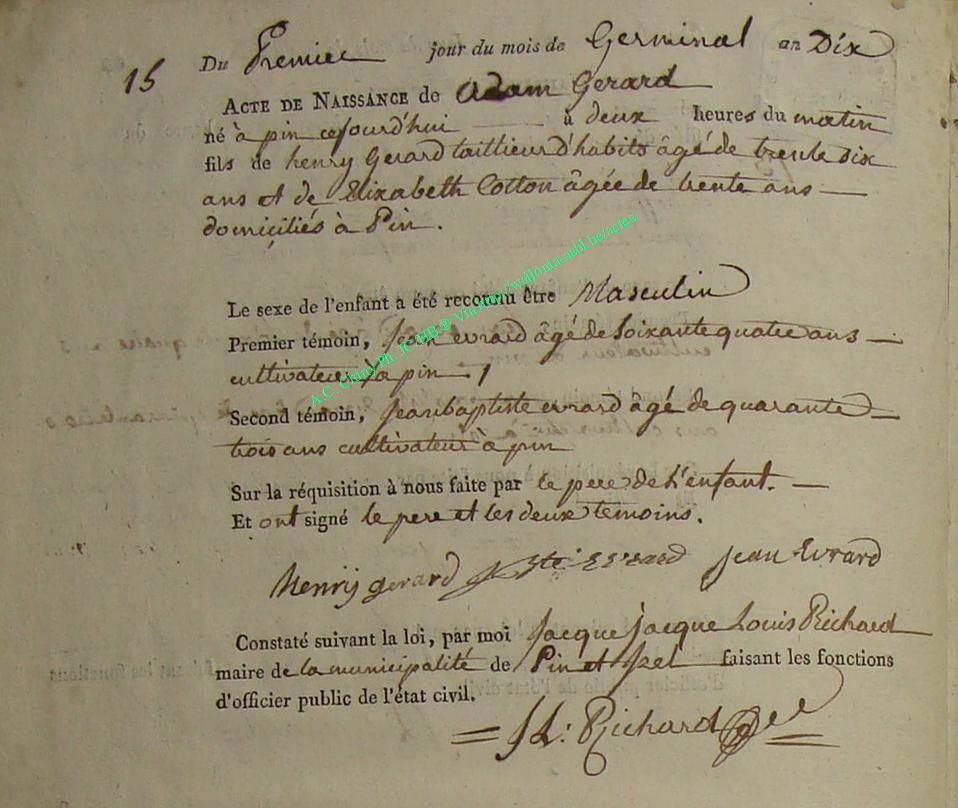 15
Du Premier jour du mois de Germinal an Dix
ACTE DE NAISSANCE de Adam Gerard
né à pin cejourd'hui à deux heures du matin
fils de henry Gerard taillieur d'habits âgé de trente six
ans et de Elizabeth Cotton âgée de trente ans —
domiciliés à Pin.
Le sexe de l'enfant a été reconnu être Masculin
Premier témoin, Jean evrard âgé de soixante quatre ans —
cultivateur à pin
Second témoin, Jean baptiste evrard âgé de quarante —
trois ans cultivateur à pin
Sur la réquisition à nous faite par le pere de l'enfant. —
Et ont signé le pere et les deux temoins.
henrij gerard J Bte Evrard Jean Evrard
Constaté suivant la loi, par moi Jacque jacque Louis Richard
maire de la municipalité de Pin et Izel faisant les fonctions
d'officier public de l'état civil.
JL: Richard
A.C. Chiny Ph. JCHHB ® Via http://wallonia-asbl.be/actes